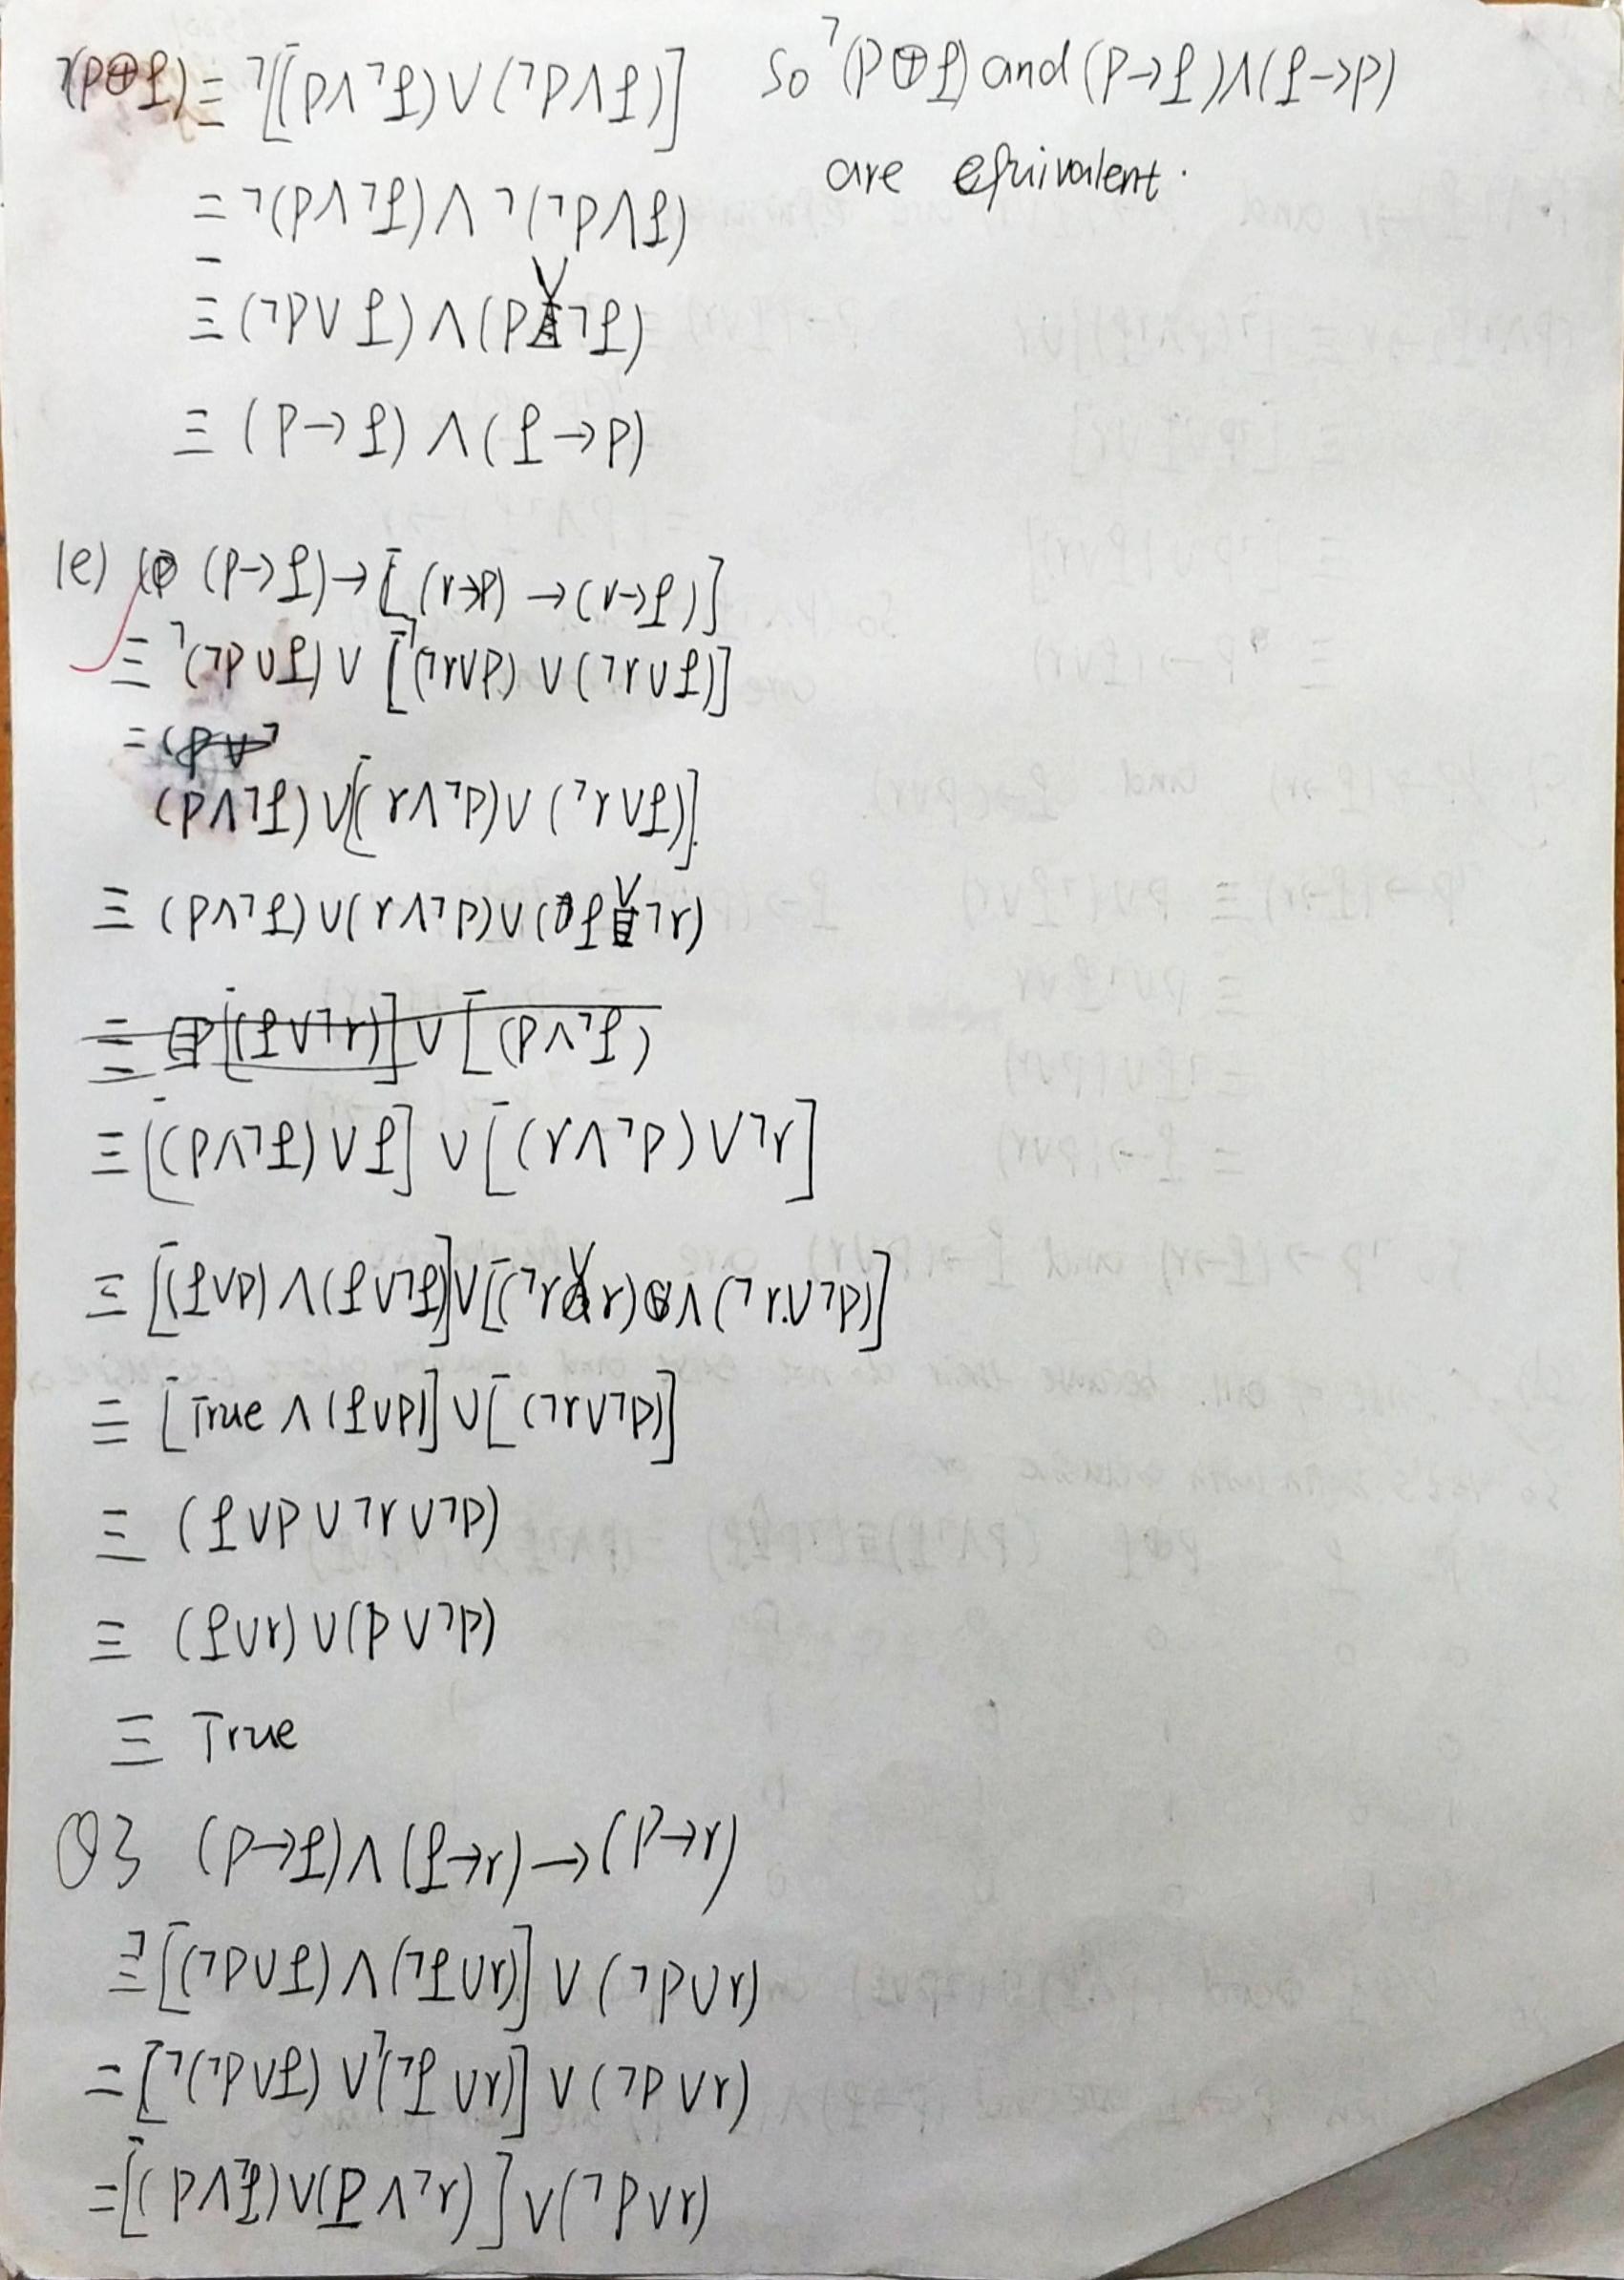 ¬(p⊕q) ≡ ¬[(p∧¬q)∨(¬p∧q)]
≡ ¬(p∧¬q)∧¬(¬p∧q)
≡ (¬p∨q)∧(p∨¬q)
≡ (p→q)∧(q→p)
So ¬(p⊕q) and (p→q)∧(q→p)
are equivalent.
1e) (p→q)→[(r→p)→(r→q)]
≡ ¬(¬p∨q)∨[¬(¬r∨p)∨(¬r∨q)]
≡ (p∨¬
(p∧¬q)∨[(r∧¬p)∨(¬r∨q)].
≡ (p∧¬q)∨(r∧¬p)∨(q∨¬r)
≡ [(q∨¬r)]∨[(p∧¬q)
≡ [(p∧¬q)∨q]∨[(r∧¬p)∨¬r]
≡ [(q∨p)∧(q∨¬q)]∨[(¬r∨r)∧(¬r∨¬p)]
≡ [True∧(q∨p)]∨[(¬r∨¬p)]
≡ (q∨p∨¬r∨¬p)
≡ (q∨r)∨(p∨¬p)
≡ True
Q3 (p→q)∧(q→r)→(p→r)
≡ ¬[(¬p∨q)∧(¬q∨r)]∨(¬p∨r)
= [¬(¬p∨q)∨¬(¬q∨r)]∨(¬p∨r)
= [(p∧¬q)∨(p∧¬r)]∨(¬p∨r)